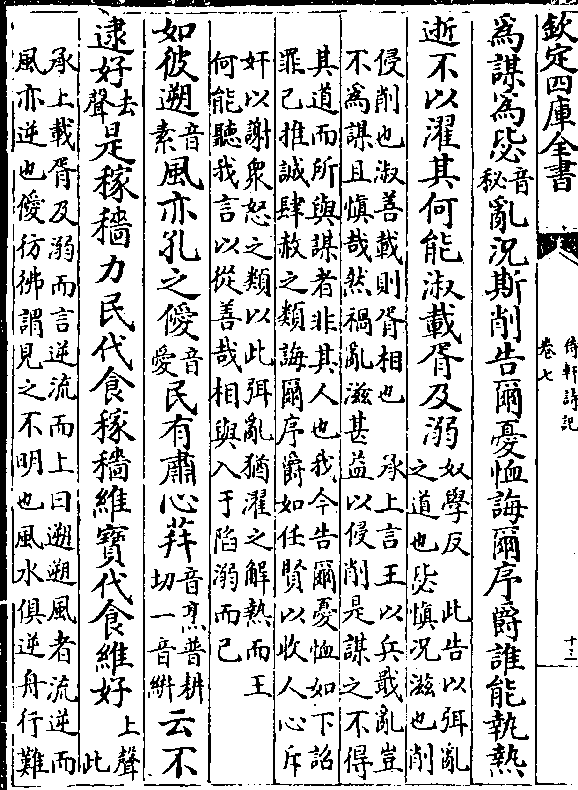 欽定四庫全書
待軒詩記
卷七
十三
為謀為毖音秘亂況斯削告爾憂恤誨爾序爵誰能執熱
逝不以濯其何能淑載胥及溺奴學反 此告以弭亂
之道也毖慎況滋也削
侵削也淑善載則胥相也 承上言王以兵戢亂豈
不為謀且慎哉然禍亂滋甚益以侵削是謀之不得
其道而所與謀者非其人也我今告爾憂恤如下詔
罪己推誠肆赦之類誨爾序爵如任賢以收人心斥
奸以謝衆怒之類以此弭亂猶濯之解熱而王
何能聽我言以從善哉相與入于陷溺而已
如彼遡音素風亦孔之僾音愛民有肅心荓音烹普耕切一音絣云不
逮好去聲是稼穡力民代食稼穡維寶代食維好上聲 此
承上載胥及溺而言逆流而上曰遡遡風者流逆而
風亦逆也僾彷彿謂見之不明也風水俱逆舟行難